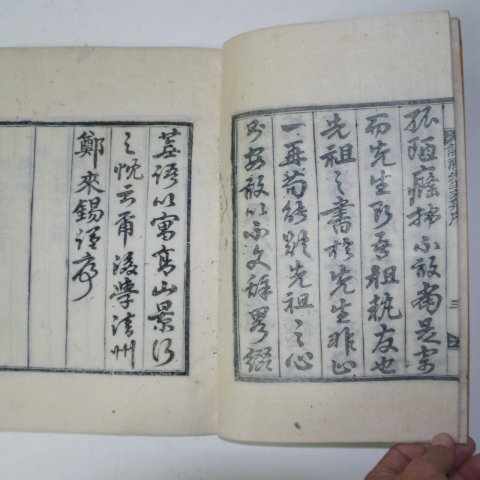 孤陋癃拙不敢當是寄
而先生即吾祖執友也
先祖之書於先生非止
一再苟能體先祖之心
則安敢以不文辭畧綴
蕪語以寓高山景行
之忱云爾後學清州
鄭來錫謹序
三